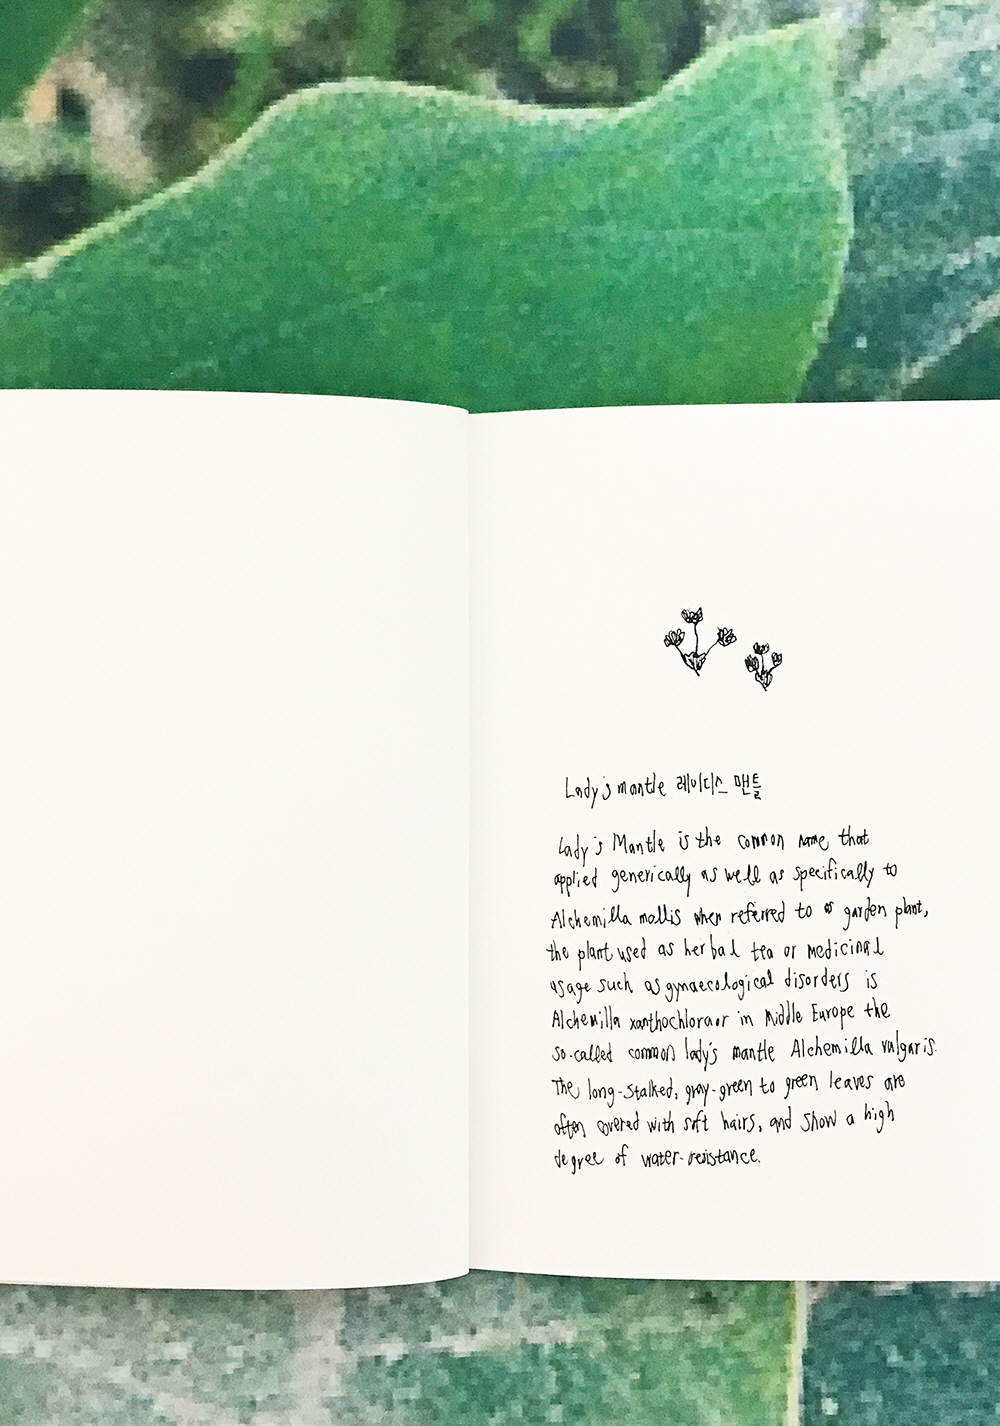 Lady's mantle 레이디스 맨틀
Lady's Mantle is the common name that
applied generically as well as specifically to
Alchemilla mollis when referred to as garden plant,
the plant used as herbal tea or medicinal
usage such as gynaecological disorders is
Alchemilla xanthochloraor in Middle Europe the
so-called common lady's mantle Alchemilla vulgaris.
The long-stalked, gray-green to green leaves are
often covered with soft hairs, and show a high
degree of water-resistance.